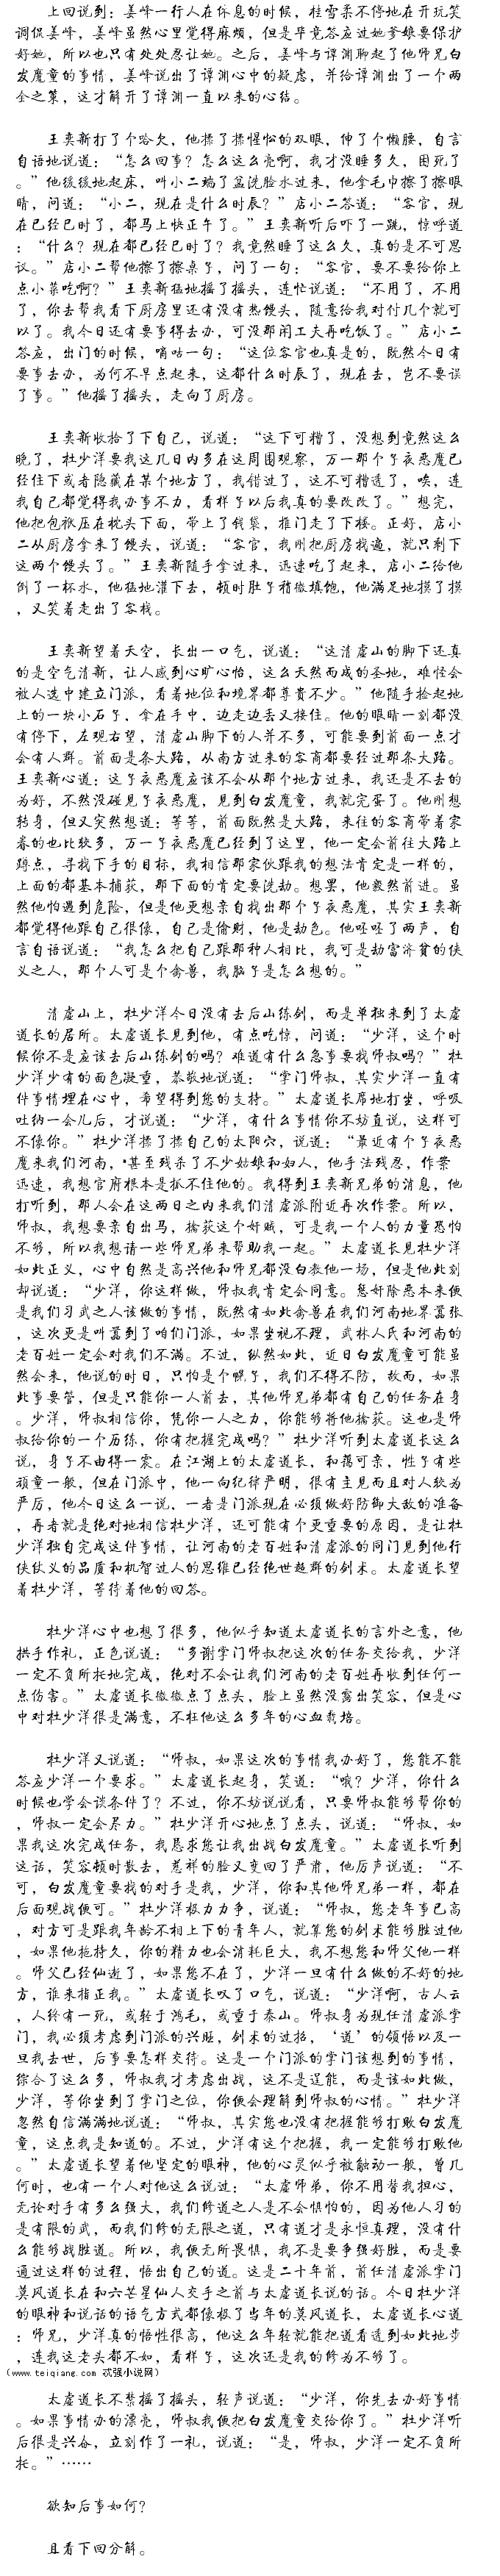 上回说到：姜峰一行人在休息的时候，桂雪柔不停地在开玩笑
调侃姜峰，姜峰虽然心里觉得麻烦，但是毕竟答应过她爹娘要保护
好她，所以也只有处处忍让她。之后，姜峰与谭渊聊起了他师兄白
发魔童的事情，姜峰说出了谭渊心中的疑虑，并给谭渊出了一个两
全之策，这才解开了谭渊一直以来的心结。
王奕新打了个哈欠，他揉了揉惺忪的双眼，伸了个懒腰，自言
自语地说道：“怎么回事？怎么这么亮啊，我才没睡多久，困死了
。”他缓缓地起床，叫小二端了盆洗脸水过来，他拿毛巾擦了擦眼
睛，问道：“小二，现在是什么时辰？”店小二答道：“客官，现
在已经巳时了，都马上快正午了。”王奕新听后吓了一跳，惊呼道
：“什么？现在都已经巳时了？我竟然睡了这么久，真的是不可思
议。”店小二帮他擦了擦桌子，问了一句：“客官，要不要给你上
点小菜吃啊？”王奕新猛地摇了摇头，连忙说道：“不用了，不用
了，你去帮我看下厨房里还有没有热馒头，随意给我对付几个就可
以了。我今日还有要事得去办，可没那闲工夫再吃饭了。”店小二
答应，出门的时候，嘀咕一句：“这位客官也真是的，既然今日有
要事去办，为何不早点起来，这都什么时辰了，现在去，岂不要误
了事。”他摇了摇头，走向了厨房。
王奕新收拾了下自己，说道：“这下可糟了，没想到竟然这么
晚了，杜少洋要我这几日内多在这周围观察，万一那个子夜恶魔已
经住下或者隐藏在某个地方了，我错过了，这不可糟透了，唉，连
我自己都觉得我办事不力，看样子以后我真的要改改了。”想完，
他把包袱压在枕头下面，带上了钱袋，推门走了下楼。正好，店小
二从厨房拿来了馒头，说道：“客官，我刚把厨房找遍，就只剩下
这两个馒头了。”王奕新随手拿过来，迅速吃了起来，店小二给他
倒了一杯水，他猛地灌下去，顿时肚子稍微填饱，他满足地摸了摸
，又笑着走出了客栈。
王奕新望着天空，长出一口气，说道：“这清虚山的脚下还真
的是空气清新，让人感到心旷心怡，这么天然而成的圣地，难怪会
被人选中建立门派，看着地位和境界都尊贵不少。”他随手捡起地
上的一块小石子，拿在手中，边走边丢又接住。他的眼睛一刻都没
有停下，在观右望，清虚山脚下的人并不多，可能要到前面一点才
会有人群。前面是条大路，从南方过来的客商都要经过那条大路。
王奕新心道：这子夜恶魔应该不会从那个地方过来，我还是不去的
为好，不然没碰见子夜恶魔，见到白发魔童，我就完蛋了。他刚想
转身，但又突然想道：等等，前面既然是大路，来往的客商带着家
眷的也比较多，万一子夜恶魔已经到了这里，他一定会前往大路上
蹲点，寻找下手的目标，我相信那家伙跟我的想法肯定是一样的，
上面的都基本捕获，那下面的肯定要洗劫。想罢，他毅然前进。虽
然他怕遇到危险，但是他更想亲自找出那个子夜恶魔，其实王奕新
都觉得他跟自己很像，自己是偷财，他是劫色。他呸呸了两声，自
言自语说道：“我怎么把自己跟那种人相比，我可是劫富济贫的侠
义之人，那个人可是个禽兽，我脑子是怎么想的。”
清虚山上，杜少洋今日没有去后山练剑，而是单独来到了太虚
道长的居所。太虚道长见到他，有点吃惊，问道：“少洋，这个时
候你不是应该去后山练剑的吗？难道有什么急事要找师叔吗？”杜
少洋少有的面色凝重，恭敬地说道：“掌门师叔，其实少洋一直有
件事情埋在心中，希望得到您的支持。”太虚道长席地打坐，呼吸
吐纳一会儿后，才说道：“少洋，有什么事情你不妨直说，这样可
不像你。”杜少洋揉了揉自己的太阳穴，说道：“最近有个子夜恶
魔来我们河南，甚至残杀了不少姑娘和妇人，他手法残忍，作案
迅速，我想官府根本是抓不住他的。我得到王奕新兄弟的消息，他
打听到，那人会在这两日之内来我们清虚派附近再次作案。所以，
师叔，我想要亲自出马，擒获这个奸贼，可是我一个人的力量恐怕
不够，所以我想请一些师兄弟来帮助我一起。”太虚道长见杜少洋
如此正义，心中自然是高兴他和师兄都没白教他一场，但是他此刻
却说道：“少洋，你这样做，师叔我肯定会同意。惩奸除恶本来便
是我们习武之人该做的事情，既然有如此禽兽在我们河南地界嚣张
，这次更是叫嚣到了咱们门派，如果坐视不理，武林人氏和河南的
老百姓一定会对我们不满。不过，纵然如此，近日白发魔童可能虽
然会来，他说的时日，只怕是个幌子，我们不得不防，故而，如果
此事要管，但是只能你一人前去，其他师兄弟都有自己的任务在身
。少洋，师叔相信你，凭你一人之力，你能够将他擒获。这也是师
叔给你的一个历练，你有把握完成吗？”杜少洋听到太虚道长这么
说，身子不由得一震。在江湖上的太虚道长，和蔼可亲，性子有些
顽童一般，但在门派中，他一向纪律严明，很有主见而且对人较为
严厉，他今日这么一说，一者是门派现在必须做好防御大敌的准备
，再者就是绝对地相信杜少洋，还可能有个更重要的原因，是让杜
少洋独自完成这件事情，让河南的老百姓和清虚派的同门见到他行
侠仗义的品质和机智过人的思维已经绝世超群的剑术。太虚道长望
着杜少洋，等待着他的回答。
杜少洋心中也想了很多，他似乎知道太虚道长的言外之意，他
拱手作礼，正色说道：“多谢掌门师叔把这次的任务交给我，少洋
一定不负所托地完成，绝对不会让我们河南的老百姓再收到任何一
点伤害。”太虚道长微微点了点头，脸上虽然没露出笑容，但是心
中对杜少洋很是满意，不枉他这么多年的心血栽培。
杜少洋又说道：“师叔，如果这次的事情我办好了，您能不能
答应少洋一个要求。”太虚道长起身，笑道：“哦？少洋，你什么
时候也学会谈条件了？不过，你不妨说说看，只要师叔能够帮你的
，师叔一定会尽力。”杜少洋开心地点了点头，说道：“师叔，如
果我这次完成任务，我恳求您让我出战白发魔童。”太虚道长听到
这话，笑容顿时散去，慈祥的脸又变回了严肃，他厉声说道：“不
可，白发魔童要找的对手是我，少洋，你和其他师兄弟一样，都在
后面观战便可。”杜少洋极力力争，说道：“师叔，您老年事已高
，对方可是跟我年龄不相上下的青年人，就算您的剑术能够胜过他
，如果他拖持久，你的精力也会消耗巨大，我不想您和师父他一样
。师父已经仙逝了，如果您不在了，少洋一旦有什么做的不好的地
方，谁来指正我。”太虚道长叹了口气，说道：“少洋啊，古人云
，人终有一死，或轻于鸿毛，或重于泰山。师叔身为现任清虚派掌
门，我必须考虑到门派的兴旺，剑术的过招，‘道’的领悟以及一
旦我去世，后事要怎样交待。这是一个门派的掌门该想到的事情，
综合了这么多，师叔我才考虑出战，这不是逞能，而是该如此做，
少洋，等你坐到了掌门之位，你便会理解到师叔的心情。”杜少洋
忽然自信满满地说道：“师叔，其实您也没有把握能够打败白发魔
童，这点我是知道的。不过，少洋有这个把握，我一定能够打败他
。”太虚道长望着他坚定的眼神，他的心灵似乎被触动一般，曾几
何时，也有一个人对他这么说过：“太虚师弟，你不用替我担心，
无论对手有多么强大，我们修道之人是不会惧怕的，因为他人习的
是有限的武，而我们修的无限之道，只有道才是永恒真理，没有什
么能够战胜道。所以，我便无所畏惧，我不是要争强好胜，而是要
通过这样的过程，悟出自己的道。这是二十年前，前任清虚派掌门
莫风道长在和六芒星仙人交手之前与太虚道长说的话。今日杜少洋
的眼神和说话的语气方式都像极了当年的莫风道长，太虚道长心道
：师兄，少洋真的悟性很高，他这么年轻就能把道看透到如此地步
，连我这老头都不如，看样子，这次还是我的修为不够了。
（www.teiqiang.com 忒强小说网）
太虚道长不禁摇了摇头，轻声说道：“少洋，你先去办好事情
。如果事情办的漂亮，师叔我便把白发魔童交给你了。”杜少洋听
后很是兴奋，立刻作了一礼，说道：“是，师叔，少洋一定不负所
托。”……
欲知后事如何？
且看下回分解。